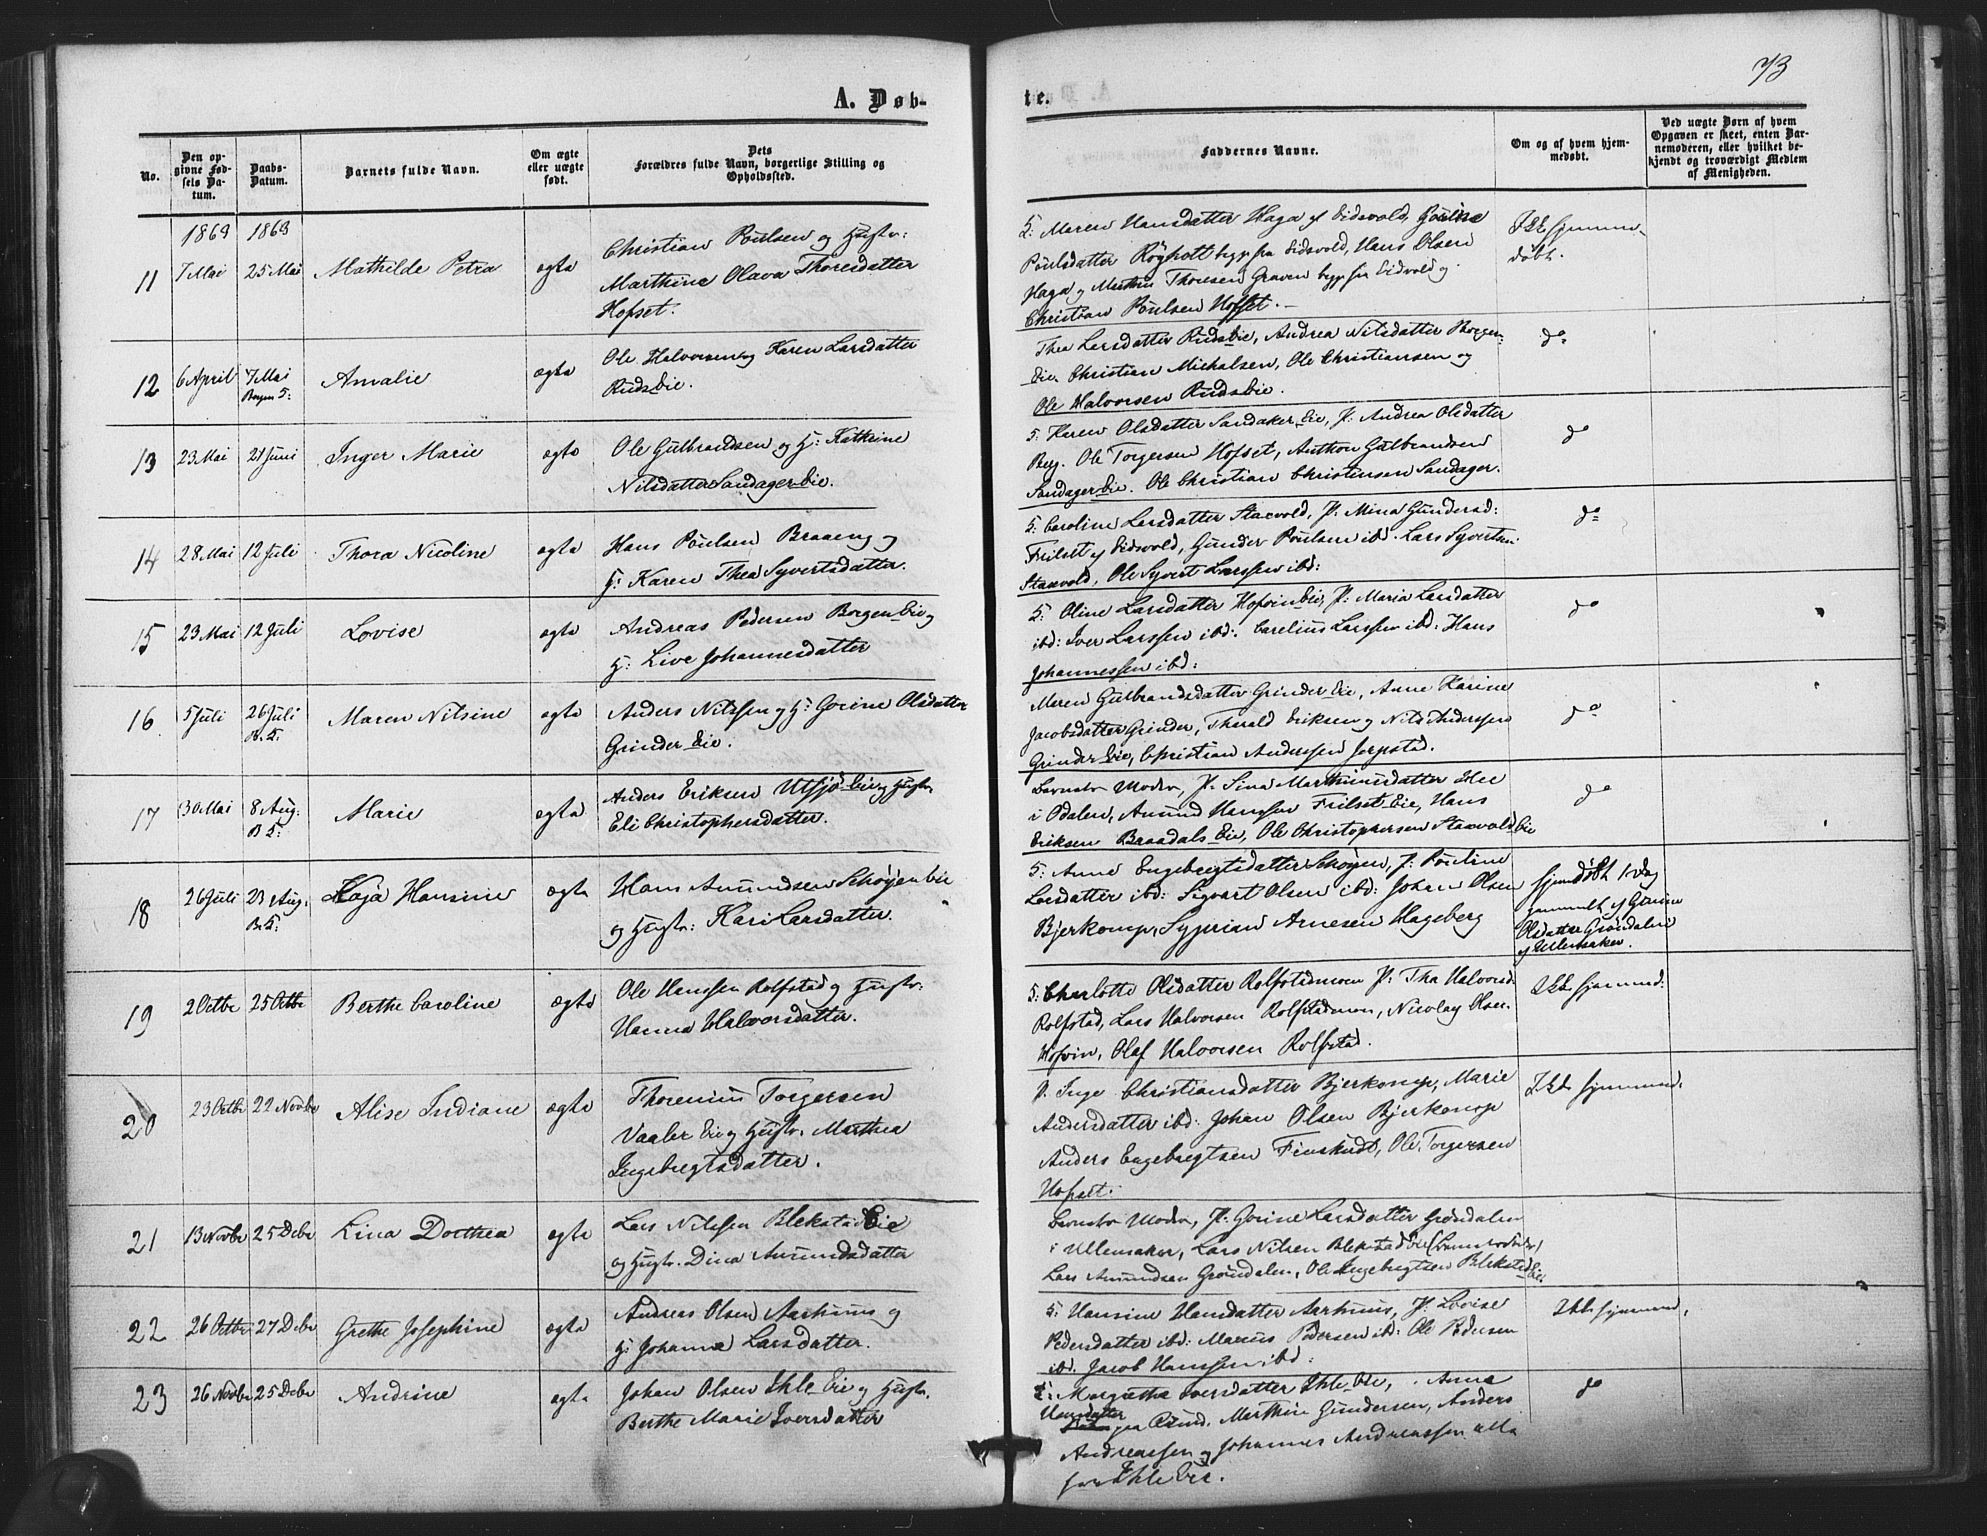 73
A. Døb-
te.
No.
Den op-
givne Fød-
sels Da-
tum.
Daabs-
Datum.
Barnets fulde Navn.
Om ægte
eller uægte
født.
Dets
Forældres fulde Navn, borgerlige Stilling og
Opholdssted.
Faddernes Navne.
Om og af hvem hjem-
medøbt.
Ved uægte Børn af hvem
Opgaven er skeet, enten Bar-
nemoderen, eller hvilket be-
kjendt og troværdigt Medlem
af Menigheden.
1869 1869
11 7 Mai 25 Mai Mathilde Petra ægte
Christian Poulsen og Hustr:
Marthine Olava Thoresdatter
Hofset.
S: Maren Hansdatter Haga af Eidsvold,
Poulsdatter Røgholt fra Eidsvold, Hans Olsen
Haga og Thoresen Graven fra Eidsvold og
Christian Poulsen Hofset.
Ikke hjemme-
døbt.
12 6 April 7 Mai Amalie ægte
Borgen S:
Ole Halvorsen og Karen Larsdatter
Rudseie.
Thea Larsdatter Rudseie, Andrea Nilsdatter Borgen-
eie. Christian Michalsen, Ole Christiansen og
Ole Halvorsen Rudseie.
do
13 23 Mai 21 Juni Inger Marie ægte
Ole Gulbrandsen og H: Kathrine
Nilsdatter Sandager Eie.
S: Karen Olsdatter Sandaker Eie, P: Andrea Olsdatter
Berg. Ole Torgersen Hofset, Anthon Gulbrandsen
Sandager Eie. Ole Christian Christensen Sandager.
do
14 28 Mai 12 Juli Thora Nicoline ægte
Hans Poulsen Braaeng og
H: Karen Thea Syvertsdatter.
S: Caroline Larsdatter Staxvold, P: Mina Gundersd:
Frilset af Eidsvold, Gunder Poulsen ibd. Lars Syvertsen
Staxvold, Ole Syvert Larssen ibd:
do
15 23 Mai 12 Juli Lovise ægte
Andreas Pedersen Borgen Eie og
H: Live Johannesdatter
S: Oline Larsdatter Hofvin Eie, P: Maria Larsdatter
ibd: Iver Larssen ibd: Carelius Larssen ibd: Hans
Johannessen ibd:
do
16 5 Juli 26 Juli Maren Nilsine ægte
B. S:
Anders Nilssen og H: Gorine Olsdatter
Grinder Eie.
Maren Gulbrandsdatter Grinder Eie, Anne Karine
Jacobsdatter Grinder, Tharald Eriksen og Nils Anderssen
Grinder Eie, Christian Anderssen
do
17 30 Mai 8 Aug. Marie ægte
B S:
Anders Eriksen Utsjø Eie og Hustr.
Eli Christophersdatter.
Barnets Moder, P: Sina Marthinusdatter
i Odalen, Amund Hansen Frilset Eie, Hans
Eriksen Braadals Eie, Ole Christophersen Staxvold Eie
do
18 26 Juli 23 Aug. Kaja Hansine ægte
B. S:
Hans Amundsen Schøyen Eie
og Hustr: Kari Larsdatter.
S: Anne Engebregtsdatter Schøyen, P: Pouline
Larsdatter ibd: Sigvart Olsen ibd: Johan Olsen
Bjerkomp, Syprian Arnesen Hageberg
hjemdøbt 1 Dag
gammelt af Gorine
Olsdatter Grøndalen
af Ullensaker.
19 2 Octbr 25 Octbr Berthe Caroline ægte
Ole Hanssen Rolfstad og Hustr:
Hanna Halvorsdatter.
S: Charlotte Olsdatter Rolfstadmoen P: Thea Halvorsd.
Rolfstad, Lars Halvorsen Rolfstadmoen, Nicolay Olsen
Hofvin, Olaf Halvorsen Rolfstad.
Ikke hjemmed:
20 23 Octbr 22 Novbr Alise Indiane ægte
Thorenius Torgersen
Vaaler Eie og Hustr. Marthea
Ingebregtsdatter.
P. Inge Christiansdatter Bjerkomp, Marie
Andersdatter ibd. Johan Olsen Bjerkomp
Anders Engebregtsen Finskudt, Ole Torgersen
Hofset.
Ikke hjemmed.
21 13 Novbr 25 Debr Lina Dorthea ægte
Lars Nilssen Blekstad Eie
og Hustr. Dina Amundsdatter
Barnets Moder, P: Gorine Larsdatter Grøndalen
i Ullensaker, Lars Nilsen Blekstad Eie
Lars Amundsen Grøndalen, Ole Engebregtsen Blekstad Eie.
22 26 Octbr 27 Debr Grethe Josephine ægte
Andreas Olsen Aarhuus og
H: Johanne Larsdatter.
S: Hansine Hansdatter Aarhuus, P: Lovise
Pedersdatter ibd: Marius Pedersen ibd: Ole Pedersen
ibd. Jacob Hanssen ibd:
Ikke hjemmed.
23 26 Novbr 25 Debr Andrine ægte
Johan Olsen Ihle Eie og Hustr.
Berthe Marie Iversdatter
S: Margrethe Iversdatter Ihle Eie, Anna
Hansdatter
Marthin Gundersen, Anders
Andreassen og Johannes Andreassen alle
fra Ihle Eie.
do